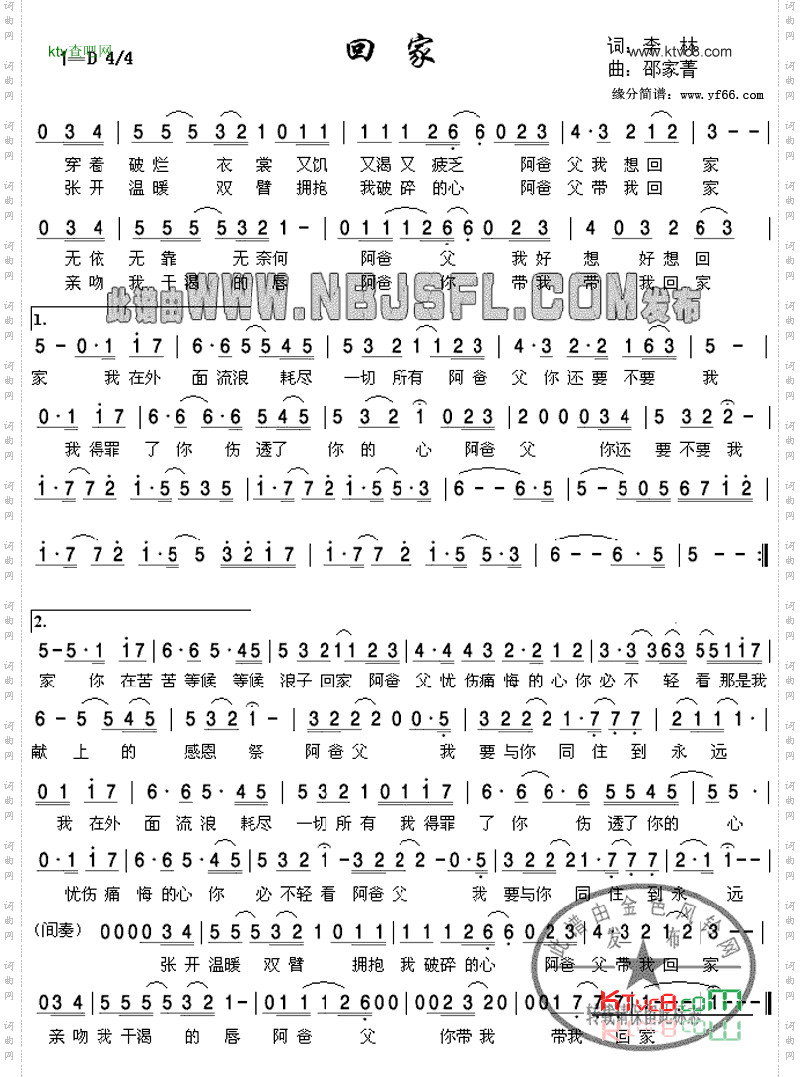 ktv查吧网
1=D 4/4
回 家
词：李 林
www.ktvc8.com
曲：邵家菁
缘分简谱：www.yf66.com
0 3 4 | 5 5 5 3 2 1 0 1 1 | 1 1 1 2 6 · 6 0 2 3 | 4 · 3 2 1 2 | 3 - - |
穿着 破烂 衣 裳 又饥 又渴 又 疲乏 阿爸 父我 想回 家
张开 温暖 双 臂 拥抱 我破碎 的心 阿爸 父带 我回 家
0 3 4 | 5 5 5 5 3 2 1 - | 0 1 1 1 2 6 · 6 0 2 3 | 4 0 3 2 6 3 |
无依 无 靠 无 奈何 阿爸 父 我好 想 好想回
亲吻 我 干渴 的 唇 阿爸 你 带我 带 我回家
此谱由WWW.NBJSFL.COM发布
1.
5 - 0 · 1 i 7 | 6 · 6 5 5 4 5 | 5 3 2 1 1 2 3 | 4 · 3 2 · 2 1 6 3 | 5 - |
家 我 在外 面 流浪 耗尽 一切 所有 阿爸 父 你 还 要 不要 我
0 · 1 i 7 | 6 · 6 6 · 6 5 4 5 | 5 3 2 1 0 2 3 | 2 0 0 0 3 4 | 5 3 2 2 - |
我 得罪 了 你 伤 透了 你 的 心 阿爸 父 你还 要 不要 我
i · 7 7 2 i · 5 5 3 5 | i · 7 7 2 i · 5 5 · 3 | 6 - - 6 · 5 | 5 - 5 0 5 6 7 i 2 |
i · 7 7 2 i · 5 5 3 2 i 7 | i · 7 7 2 i · 5 5 · 3 | 6 - - 6 · 5 | 5 - - :‖
2.
5 - 5 · 1 i 7 | 6 · 6 5 · 4 5 | 5 3 2 1 1 2 3 | 4 · 4 4 3 2 · 2 1 2 | 3 · 3 3 6 3 5 5 1 i 7 |
家 你 在苦 苦 等候 等候 浪子 回家 阿爸 父忧 伤痛 悔的 心你 必不 轻 看 那是我
6 - 5 5 4 5 | 5 3 2 1 - | 3 2 2 2 2 0 0 · 5 | 3 2 2 2 1 · 7 7 7 | 2 1 1 1 - |
献 上 的 感恩 祭 阿爸 父 我 要与你 同 住 到 永 远
0 1 i 7 | 6 · 6 5 · 4 5 | 5 3 2 1 0 1 i 7 | 6 · 6 6 · 6 5 5 4 5 | 5 5 · |
我 在外 面 流 浪 耗尽 一切 所有 我 得罪 了 你 伤 透了 你的 心
0 · 1 i 7 | 6 · 6 5 · 4 5 | 5 3 2 1 - 3 2 2 2 - 0 · 5 | 3 2 2 2 1 · 7 7 7 | 2 · 1 1 - - |
忧伤 痛 悔 的心 你 必 不轻 看 阿爸 父 我 要与你 同 住 到 永 远
(间奏) 0 0 0 0 3 4 | 5 5 5 3 2 1 0 1 1 | 1 1 1 2 6 · 6 0 2 3 | 4 · 3 2 1 2 | 3 - - |
张 开 温暖 双 臂 拥抱 我 破碎 的心 阿爸 父带 我回 家
0 3 4 | 5 5 5 5 3 2 1 - | 0 1 1 1 2 6 0 0 | 0 0 2 2 3 2 0 | 0 0 1 7 7
亲 吻 我 干渴 的 唇 阿 爸 父 你带 我 带我 回 家
此谱由金色风铃网
发 布
KTvc8.com
词曲网